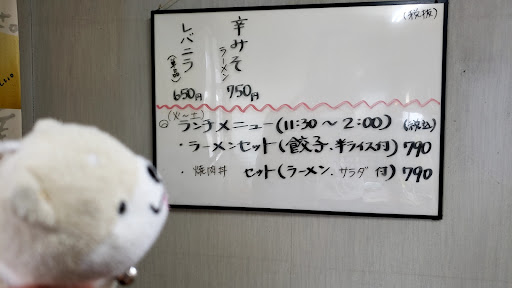 (税抜)
辛みそラーメン
750円
レバニラ(単品)
650円
(火~土)
◎ ランチメニュー(11:30~2:00) (税込)
・ラーメンセット(餃子、半ライス付) 790
・焼肉丼 セット(ラーメン、サラダ 付) 790